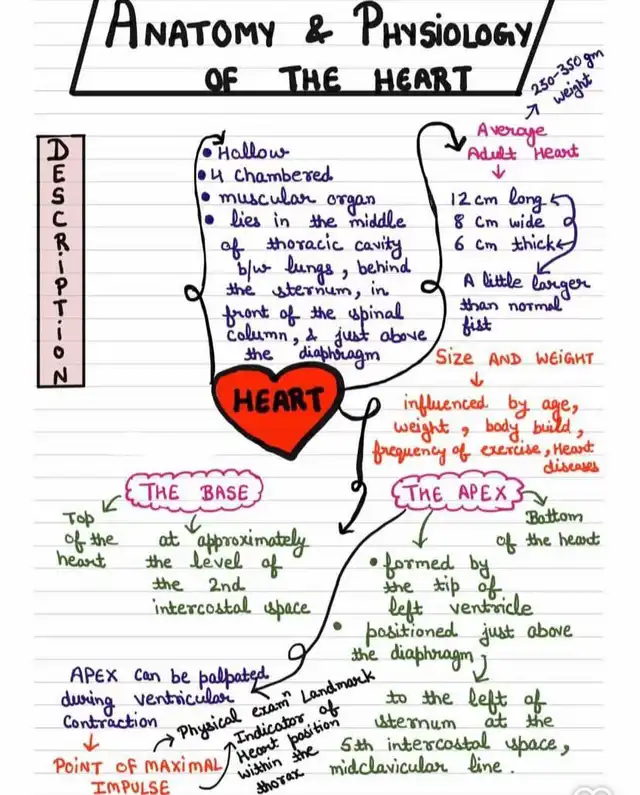 ANATOMY & PHYSIOLOGY
OF THE HEART
DESCRIPTION
• Hollow
• 4 chambered
• muscular organ
• lies in the middle
of thoracic cavity
b/w lungs, behind
the sternum, in
front of the spinal
column, & just above
the diaphragm
250-350 gm
weight
Average
Adult Heart
12 cm long
8 cm wide
6 cm thick
A little larger
than normal
fist
HEART
SIZE AND WEIGHT
influenced by age,
weight, body build,
frequency of exercise, Heart
diseases
THE BASE
Top
of the
heart
at approximately
the level of
the 2nd
intercostal space
THE APEX
Bottom
of the heart
• formed by
the tip of
left ventricle
• positioned just above
the diaphragm
to the left of
sternum at the
5th intercostal space,
midclavicular line.
APEX can be palpated
during ventricular
contraction
POINT OF MAXIMAL
IMPULSE
Physical examⁿ Landmark
Indicator of
Heart position
within the
thorax